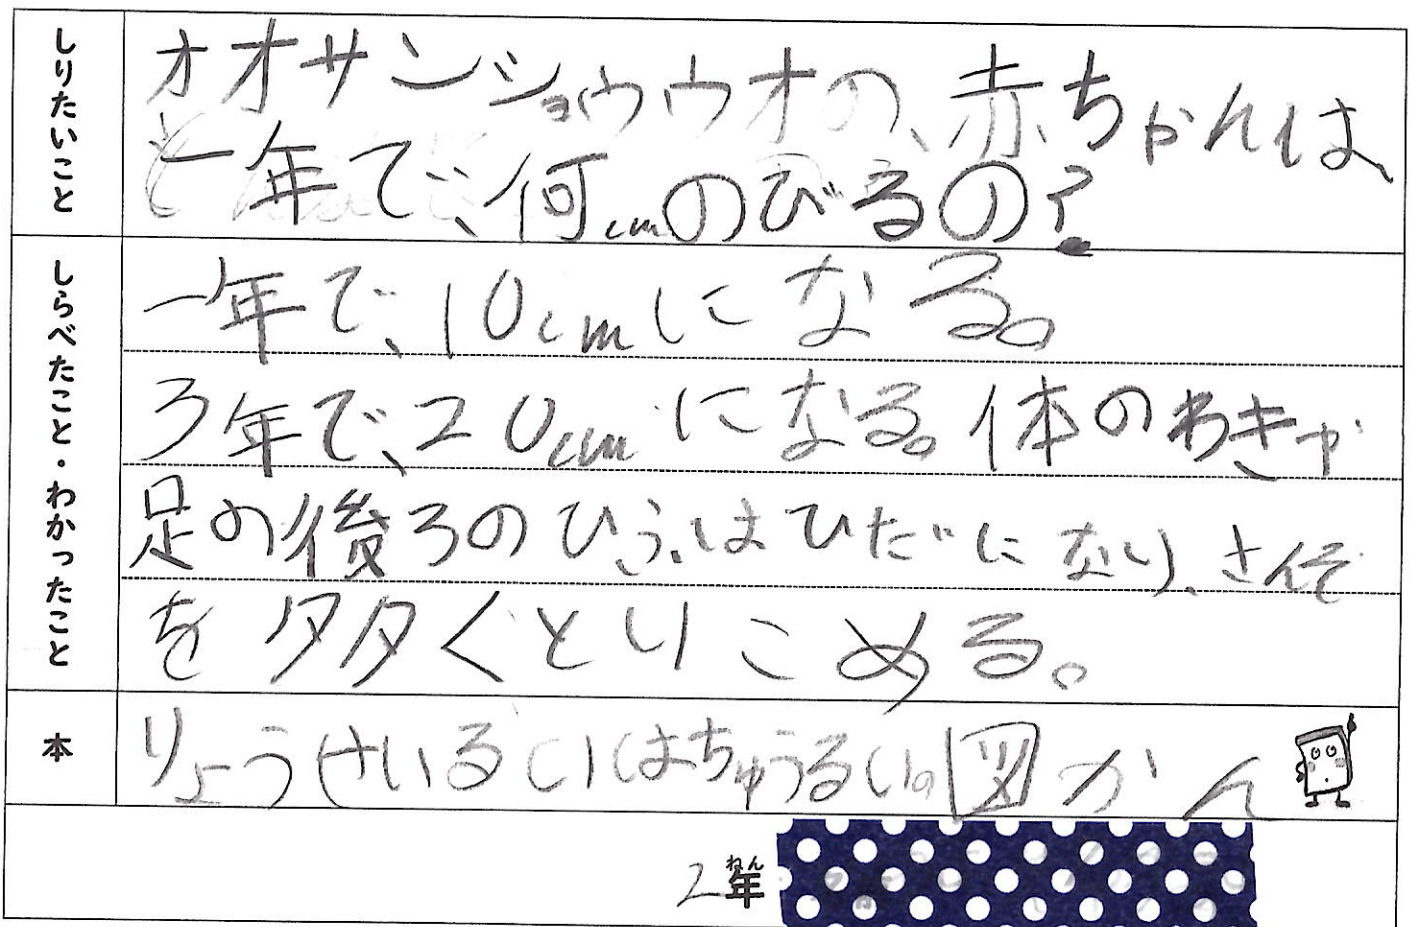 しりたいこと
オオサンショウウオの、赤ちゃんは、
一年で、何cmのびるの？
しらべたこと・わかったこと
一年で、10cmになる。
3年で、20cmになる。体のわきや
足の後ろのひふはひだになり、さんそ
を多くとりこめる。
本
りょうせいるいはちゅうるいの図かん
2年
ねん